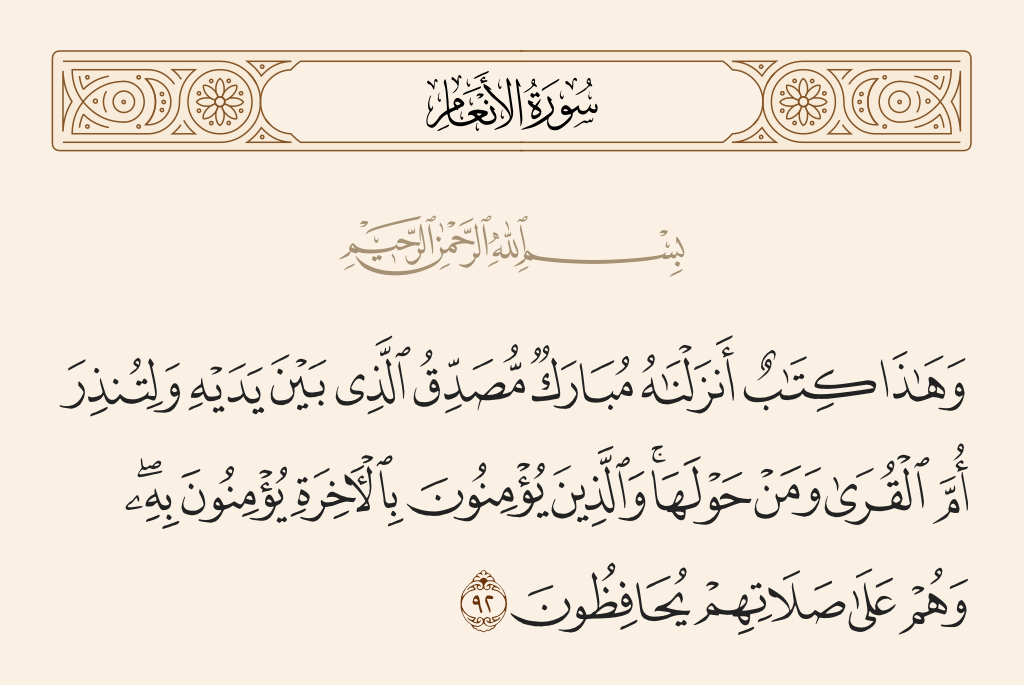 سُورَةُ الأَنْعَامِ
بِسْمِ ٱللَّهِ ٱلرَّحْمَٰنِ ٱلرَّحِيمِ
وَهَٰذَا كِتَٰبٌ أَنزَلْنَٰهُ مُبَارَكٌ مُّصَدِّقُ ٱلَّذِى بَيْنَ يَدَيْهِ وَلِتُنذِرَ
أُمَّ ٱلْقُرَىٰ وَمَنْ حَوْلَهَا ۚ وَٱلَّذِينَ يُؤْمِنُونَ بِٱلْءَاخِرَةِ يُؤْمِنُونَ بِهِۦ ۖ
وَهُمْ عَلَىٰ صَلَاتِهِمْ يُحَافِظُونَ ٩٢